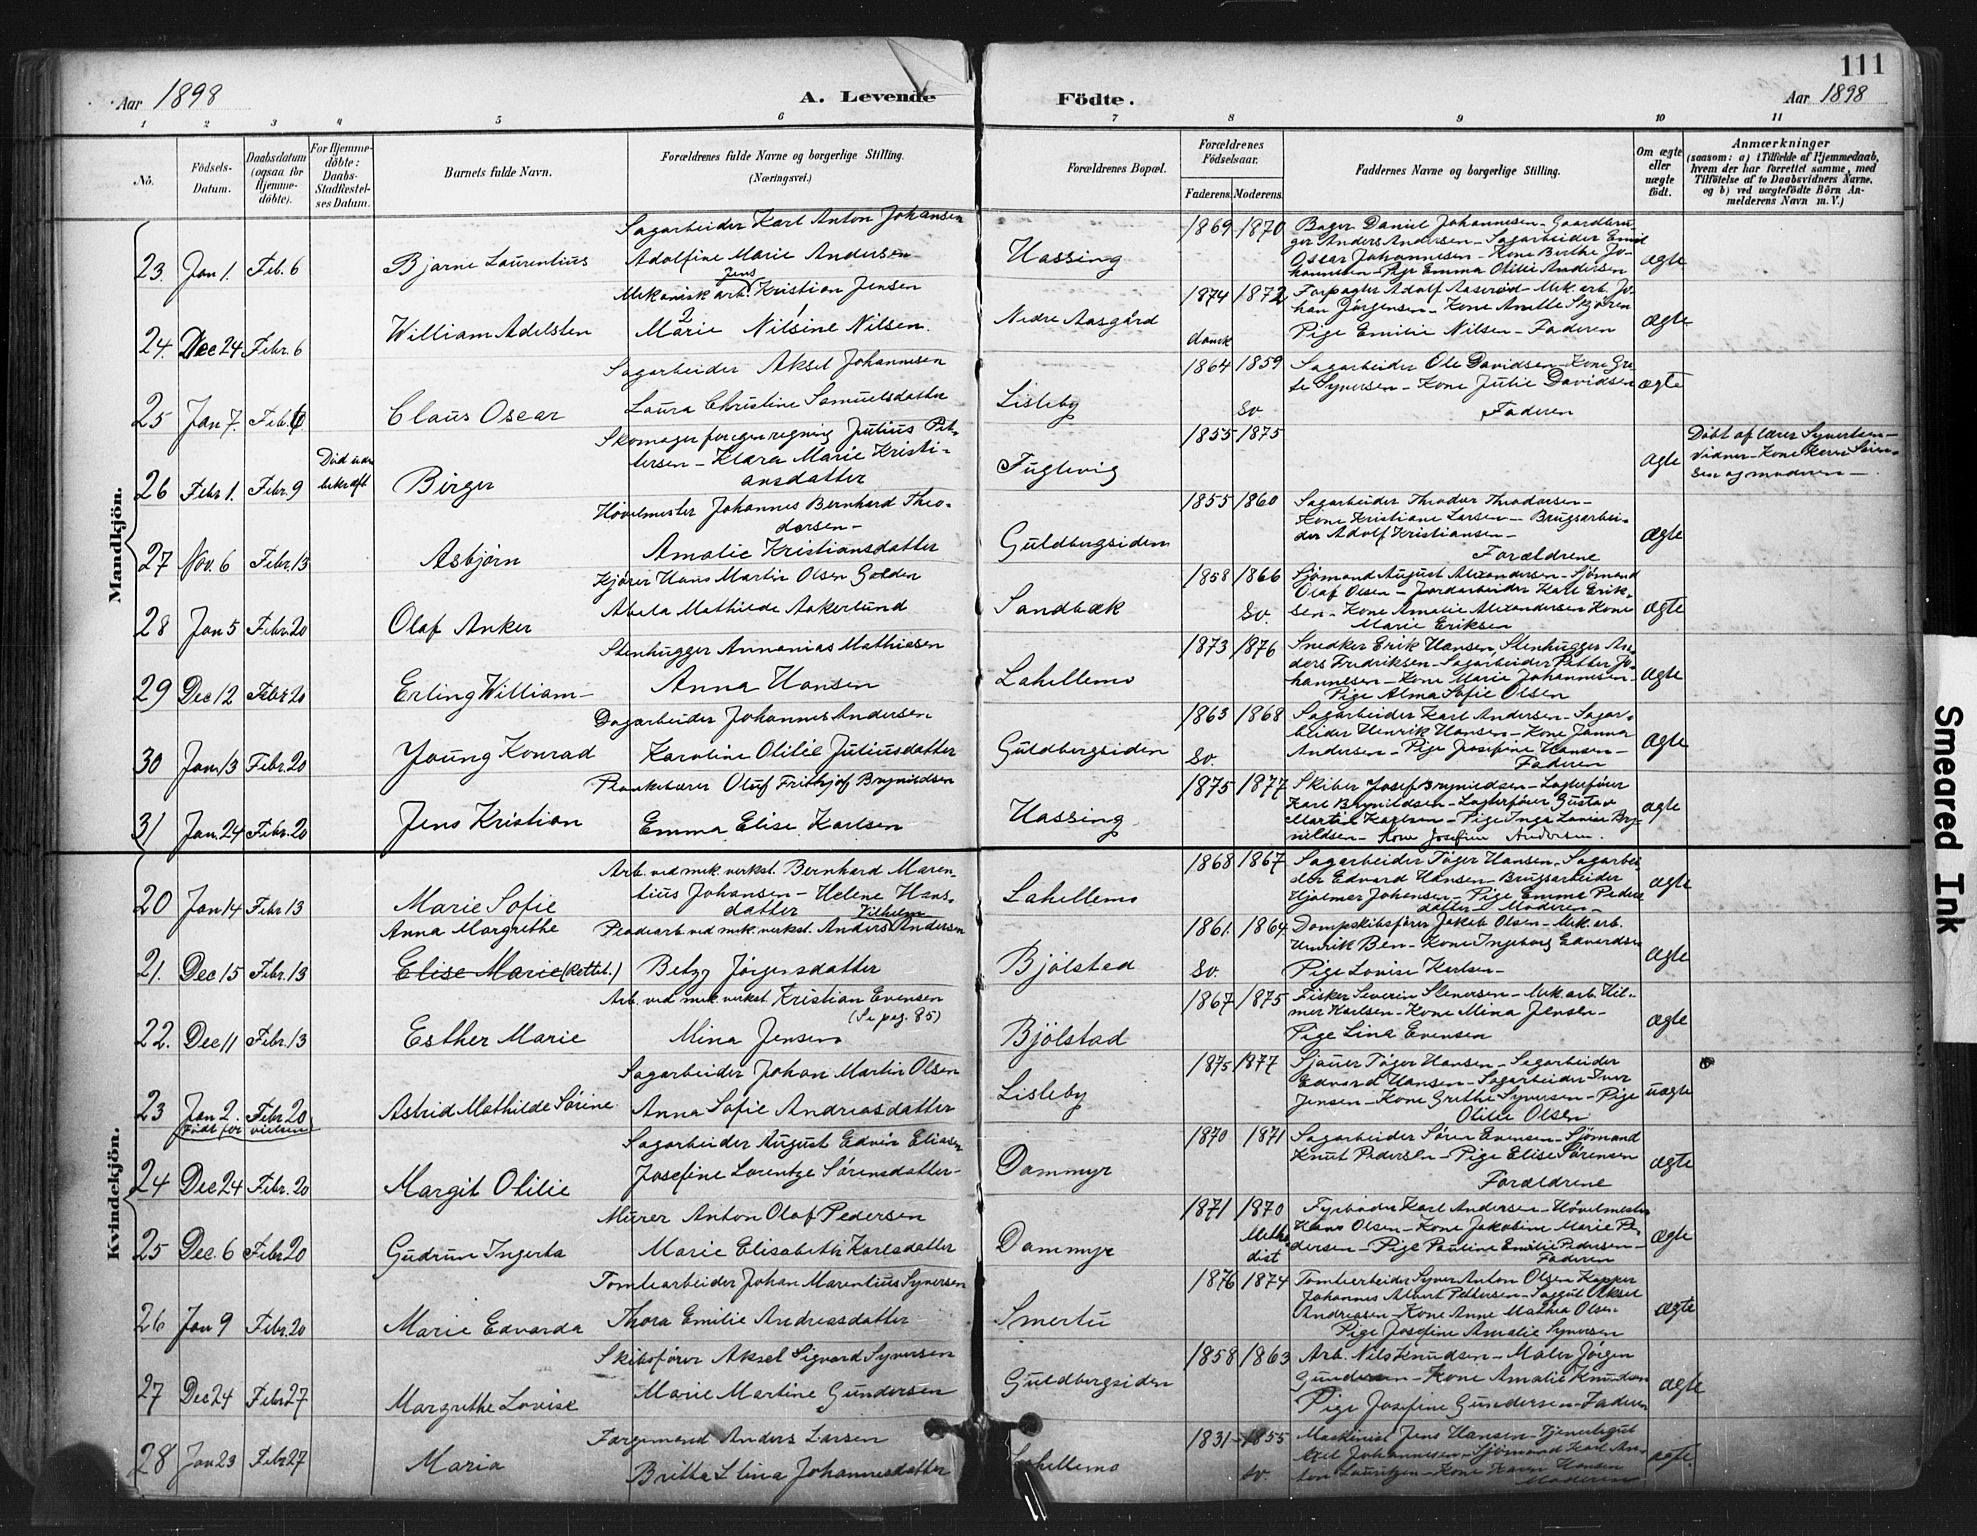 111
Aar 1898
A. Levende Födte.
Aar 1898
1 2 3 4 5 6 7 8 9 10 11
No.
Födsels-Datum.
Daabsdatum (ogsaa for Hjemme-döbte).
For Hjemme-döbte: Daabs-Stadfæstel-ses Datum.
Barnets fulde Navn.
Forældrenes fulde Navne og borgerlige Stilling. (Næringsvei.)
Forældrenes Bopæl.
Forældrenes Födselsaar.
Faderens. Moderens.
Faddernes Navne og borgerlige Stilling.
Om ægte eller uægte födt.
Anmærkninger
(saasom: a) i Tilfælde af Hjemmedaab, hvem der har forrettet samme, med Tilföielse af to Daabsvidners Navne, og b) ved uægtefödte Börn An-melderens Navn m. V.)
Mandkjön.
23. Jan 1. Feb. 6 Bjarne Laurentius
Sagarbeider Karl Anton Johansen
Adolfine Marie Andersen
Hassing 1869 1870
Bager Daniel Johannesen - Gaardbru-
ger Anders Andersen - Sagarbeider Emil
Oscar Johannesen - Kone Berthe Jo-
hannesen - Pige Emma Otilie Andersen
ægte
24. Dec 24 Febr. 6 William Adelsten
Jens
Mekanisk arb. Kristian Jensen
2 1
Marie Nilsine Nilsen.
Nedre Aasgård 1874 1872
dansk
Forpagter Adolf Aaserød - Mek. arb. Jo-
han Jörgensen - Kone Anette Skjören
Pige Emilie Nilsen - Faderen
ægte
25 Jan 7. Feb. 6 Claus Oscar
Sagarbeider Aksel Johannesen
Laura Christine Samuelsdatter
Lisleby 1864 1859
Sv
Sagarbeider Ole Davidsen - Kone Gre-
te Syversen - Kone Julie Davidsen
Faderen
ægte
26 Febr 1. Febr. 9 Birger
Skomager for egen regning Julius Pet-
tersen - Klara Marie Kristi-
ansdatter
Fuglevig 1855 1875
ægte
Döbt af lærer Syvertsen -
Vidner - Kone Karen Sören-
sen og moderen -
27 Nov. 6 Febr. 13 Asbjörn
Hövelmester Johannes Bernhard Theo-
dorsen -
Amalie Kristiansdatter
Guldbergsiden 1855 1860
Sagarbeider Theodor Theodorsen -
Kone Kristiane Larsen - Brugsarbei-
der Adolf Kristiansen -
Forældrene
ægte
28 Jan 5 Febr. 20 Olaf Anker
Kjörer Hans Martin Olsen Golden
Abela Mathilde Aakerlund
Sandbæk 1858 1866
Sv.
Sjömand August Alexandersen - Sjömand
Olaf Olsen - Jordarbeider Karl Erik-
sen - Kone Amalie Alexandersen Kone
Marie Eriksen
ægte
29 Dec 12 Febr 20 Erling William -
Stenhugger Annanias Mathisen
Anna Hansen
Lahellemo 1873 1876
Snedker Erik Hansen, Stenhugger An-
ders Fredriksen - Sagarbeider Petter Jo-
hannesen - Kone Marie Johannesen -
Pige Alma Sofie Olsen
ægte
30 Jan. 13 Febr. 20 Young Konrad
Dagarbeider Johannes Andersen
Karoline Otilie Juliusdatter
Guldbergsiden 1863 1868
Sv.
Sagarbeider Karl Andersen - Sagar-
beider Henrik Hansen - Kone Janna
Andersen - Pige Josefine Hansen -
Faderen
ægte
31 Jan. 24 Febr. 20 Jens Kristian
Plankebærer Oluf Frithjof Brynildsen
Emma Elise Karlsen
Hassing 1875 1877
Skiber Josef Brynildsen - Lagterförer
Karl Brynildsen - Lagterförer Gustav
Martin Karlsen - Pige Inga Lovise Bry-
nildsen - Kone Josefine Andersen.
ægte
Kvindekjön.
20 Jan 14 Febr 13 Marie Sofie
Arb. ved mek. verkst. Bernhard Maren-
tius Johansen - Helene Hans-
datter
Lahellemo 1868 1867
Sagarbeider Töger Hansen - Sagarbei-
der Edvard Hansen - Brugsarbeider
Hjalmer Johansen - Pige Emma Peders-
datter - Moderen -
ægte
21. Dec 15 Febr. 13 Anna Margrethe
Elise Marie (Rettet.)
Vilhelm
Pladearb. ved mek. verkst. Anders Andersen
Betzy Jörgensdatter
Bjölstad 1861. 1864
Sv.
Dampskibsförer Jakob Olsen - Mek. arb.
Henrik Ben - Kone Ingeborg Edvardsen
Pige Lovise Karlsen -
ægte
22. Dec 11 Febr. 13 Esther Marie
Arb. ved mek. verkst. Kristian Evensen
(Se pag. 85)
Mina Jensen
Bjölstad 1867 1875
Fisker Severin Stenersen - Mek. arb. Hil-
mer Karlsen - Kone Mina Jensen -
Pige Lina Evensen
ægte
23 Jan 2. Febr 20 Astrid Mathilde Sörine
Födt för vielsen
Sagarbeider Johan Martin Olsen
Anna Sofie Andreasdatter
Lisleby 1875 1877
Sjauer Töger Hansen - Sagarbeider
Edvard Hansen - Sagarbeider Iver
Jensen - Kone Grethe Syversen - Pige
Otilie Olsen
uægte
24 Dec 24 Febr. 20 Margit Otilie
Sagarbeider August Edvin Eliasen
Josefine Lorentze Sörensdatter -
Dammyr 1870 1871
Sagarbeider Sören Evensen - Sjömand
Knut Pedersen - Pige Elise Sörensen
Forældrene
ægte
25 Dec. 6 Febr 20 Gudrun Ingerta
Murer Anton Olaf Pedersen
Marie Elisabeth Karlsdatter
Dammyr 1871 1870
Metho-
dist
Fyrböder Karl Andersen - Hövelmester
Hans Olsen - Kone Jakobine Marie Pe-
dersen - Pige Pauline Emilie Pedersen -
Faderen
ægte
26 Jan 9 Febr. 20 Marie Edvarda
Tomtearbeider Johan Marentius Syversen
Thora Emilie Andreasdatter
Smertu 1876 1874
Tomtearbeider Syver Anton Olsen Kapper
Johannes Albert Pettersen - Saggut Aksel
Andreasen - Kone Anne Mathea Olsen
Pige Josefine Amalie Syversen
ægte
27 Dec 24 Febr 27 Margrethe Lovise
Skibsförer Aksel Sigvard Syversen
Marie Martine Gundersen
Guldbergsiden 1858 1863
Arb. Nils Knudsen - Maler Jörgen
Gundersen - Kone Amalie Knudsen
Pige Josefine Gundersen - Faderen
ægte
28 Jan 23 Febr 27 Maria
Færgemand Anders Larsen
Britta Stina Johannesdatter
Lahellemo 1831 - 1855
Sv.
Maskinist Jens Hansen - Tjenestegut
Axel Johannesen - Sjömand Karl An-
ton Lauritzen - Kone Karen Hansen
Moderen
ægte.
Smeared Ink